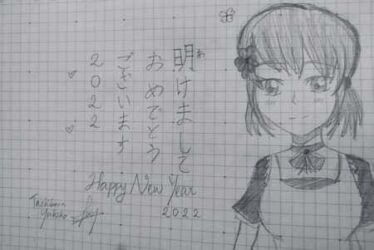 明けまして
おめでとう
ございます
2022
Happy New Year
2022